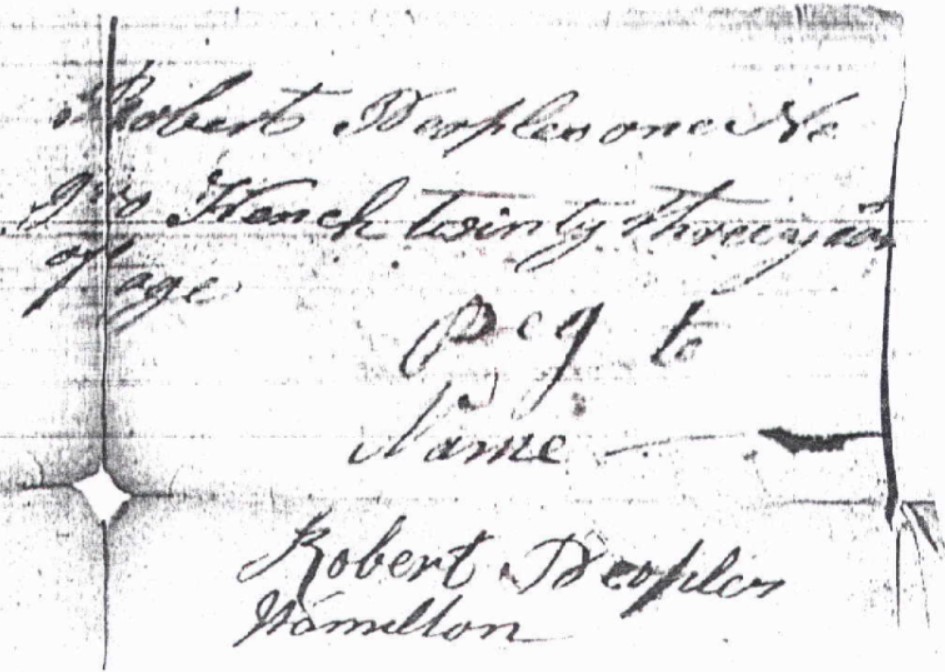 Robert Peoples one Ne
gro Wench twinty three years
of age
Peg to
Name
Robert Peoples
Hamilton